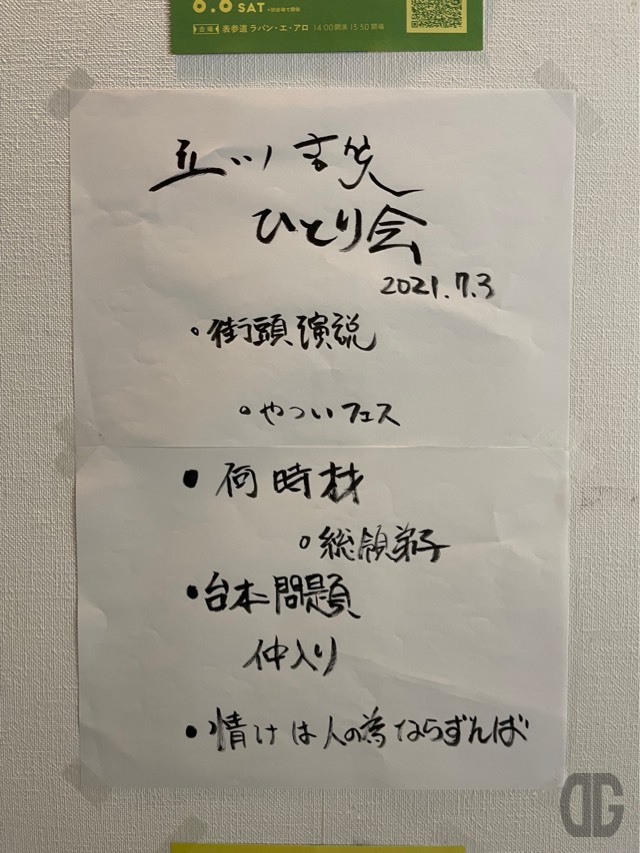 6.6 SAT
会場 表参道 ラパン・エ・アロ 14:00開演 13:30開場
立川吉笑
ひとり会
2021.7.3
街頭演説
やついフェス
何時材
総領弟子
台本問題
仲入り
情けは人の為ならずんば
DG